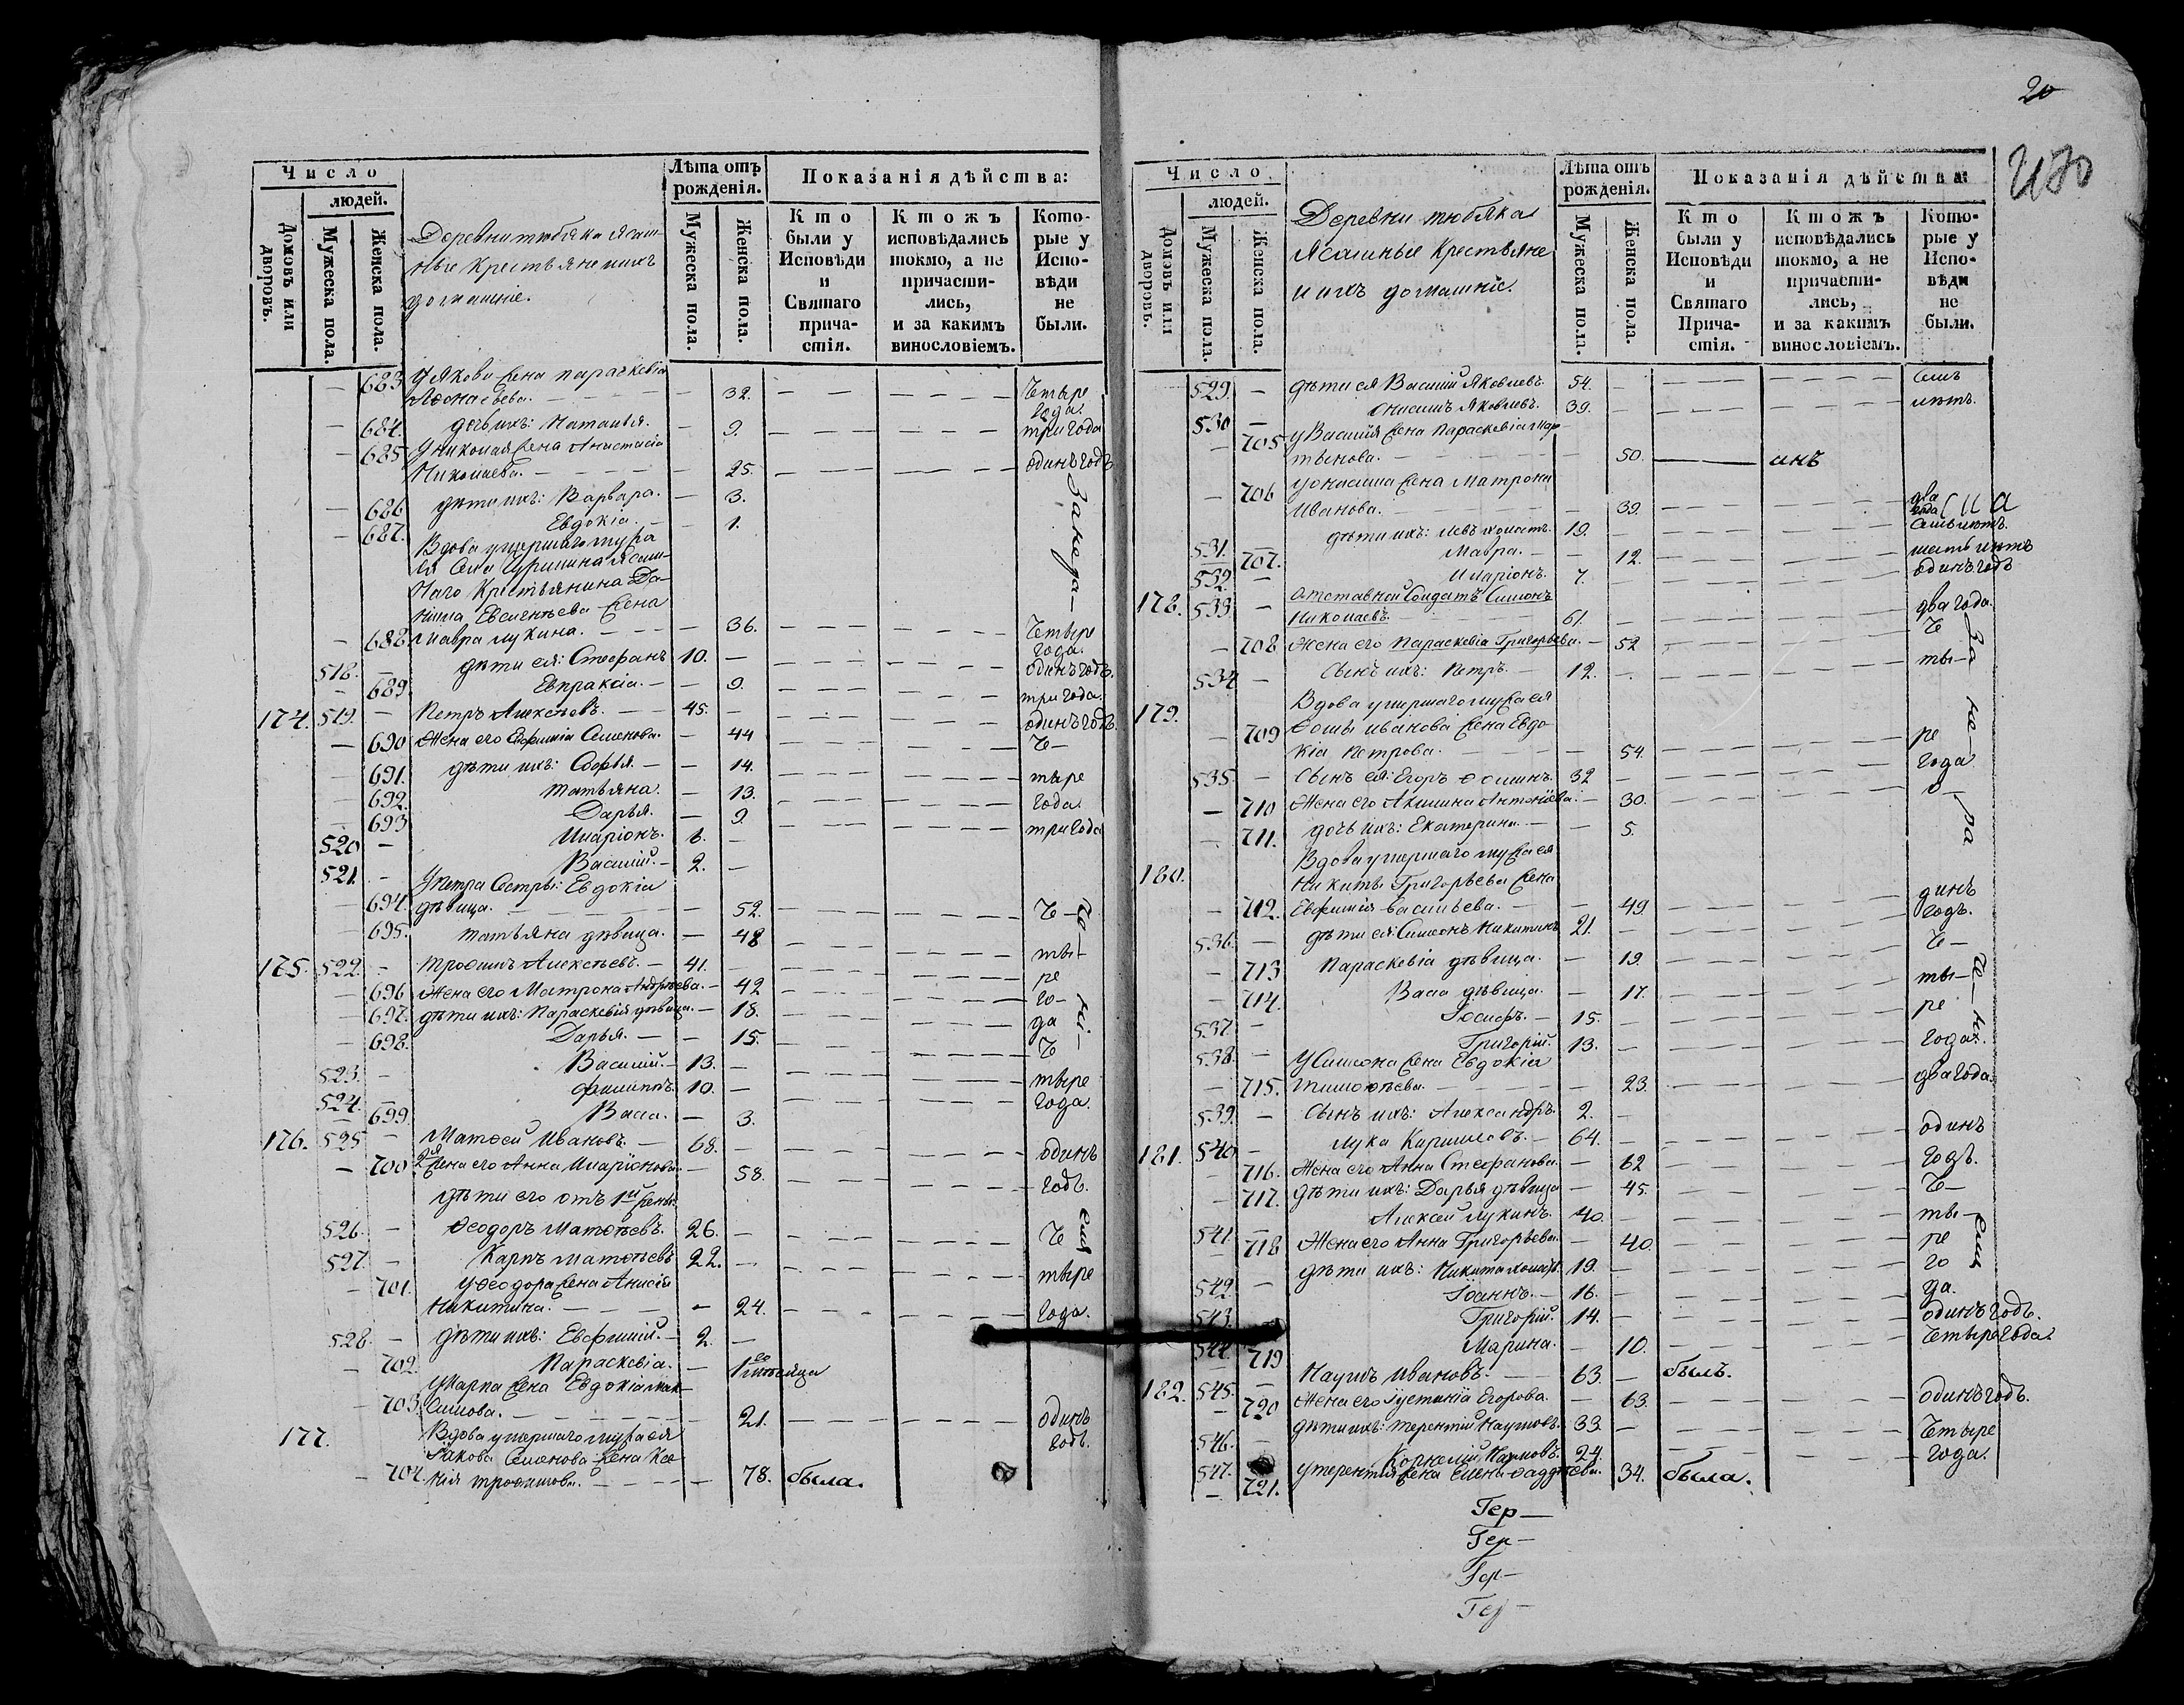 20
Число
людей.
Домовъ или дворовъ.
Мужеска пола.
Женска пола.
Деревни тюбяка ясаш-
ные крестьяне и ихъ
домашніе.
Лѣта отъ рожденія.
Мужеска пола.
Женска пола.
Показанія дѣйства:
Кто были у Исповѣди и Святаго причастія.
Ктожъ исповѣдались токмо, а не причастились, и за какимъ винословіемъ.
Которые у Исповѣди не были.
— 683 у Якова жена параскевіа
Аѳонасьева. — 32. — — Четыре года.
— 684. дочь ихъ: Наталья. — 9. — — три года
— 685. у николая жена Анистасіа
Николаева. — 25. — — одинъ годъ
— 686 дѣти ихъ: Варвара. — 3.
— 687. Евдокіа. — 1.
Вдова умершаго мужа
ея Села Чурилина ясаш-
наго Крестьянина Да-
нила Евсигнѣева жена
— 688 Мавра лукина. — 36. — — Четыре года.
518. — дѣти ея: Стефанъ 10. — — — одинъ годъ.
— 689. Евпраксіа. — 9. — — три года.
174. 519. — Петръ Алексѣевъ. 45. — — — одинъ годъ.
— 690 Жена его Евфимія Семенова. — 44 — — Че—
— 691. дѣти ихъ: Софья. — 14. — — тыре
— 692. татьяна. — 13. — — года
— 693 Дарья. — 9 — — три года
520 — Иларіонъ. 6. —
521. — Василій. 2. —
у петра Сестры: Евдокіа
— 694. дѣвица. — 52. — — Че—
— 695. татьяна дѣвица. — 48 — — ты—
175. 522. — трофимъ Алексѣевъ. 41. — — — ре
— 696 Жена его Матрона Андрѣева. — 42 — — го—
— 697. дѣти ихъ: Параскевія дѣвица. — 18. — — да
— 698. Дарья. — 15. — — Че
523. — Василій. 13. — — — тыре
524. — филиппъ. 10. — — — года.
— 699. Васа. — 3.
176. 525 — Матѳей Ивановъ. 68. — — — одинъ
— 700 2я жена его Анна Иларіонова. — 58. — — годъ.
дѣти его отъ 1й жены:
526. — Ѳеодоръ Матѳѣевъ. 26. — — — Че
527. — Карпъ Матѳѣевъ 22. — — — тыре
— 701. у Ѳеодора жена Анисіа
Никитина. — 24. — — года.
528. — дѣти ихъ: Евфимій. 2. —
— 702. Параскевіа. — 1го мѣсяца
у Карпа жена Евдокіа мак-
— 703. Симова. — 21. — — одинъ годъ.
177. Вдова умершаго мужа ея
Іакова Семенова жена Ксе-
— 704. нія трофимова. — 78. была.
За нера—
че—
ні—
емъ
Число
людей.
Домовъ или дворовъ.
Мужеска пола.
Женска пола.
Деревни тюбяка
Ясашные Крестьяне
и ихъ домашніе.
Лѣта отъ рожденія.
Мужеска пола.
Женска пола.
Показанія дѣйства:
Кто были у Исповѣди и Святаго Причастія.
Ктожъ исповѣдались токмо, а не причастились, и за какимъ винословіемъ.
Которые у Исповѣди не были.
529. — дѣти ея Василій Яковлевъ. 54. — — — семь
530 — Онисимъ Яковлевъ. 39. — — — лѣтъ.
— 705 у Василія жена Параскевіа Мар-
тынова. — 50.
— 706 у онисима жена Матрона
Иванова. — 39. — — два года
531. — дѣти ихъ: Левъ холостъ. 19. — — — семь лѣтъ.
— 707. Мавра. — 12. — — шесть лѣтъ
532 — Иларіонъ. 7. — — — одинъ годъ
178. 533. — отставной Солдатъ Симіонъ
Николаевъ. 61. — — — два года.
— 708 Жена его Параскевіа Григорьева. — 52 — — Че
534 — Сынъ ихъ: Петръ. 12. — — — ты—
179. Вдова умершаго мужа ея
— 709 Ѳомы иванова жена Евдо-
кіа петрова. — 54. — — ре
535. — Сынъ ея: Егоръ Ѳоминъ. 32 — — — года
— 710 Жена его Акилина Антоніева. — 30. — — о—
— 711. дочь ихъ: Екатерина. — 5.
180. Вдова умершаго мужа ея
Никиты Григорьева жена
— 712. Евфимія Васильева. — 49. — — динъ
536. — дѣти ея: Симеонъ Никитинъ 21. — — — годъ.
— 713 Параскевіа дѣвица. — 19. — — Че—
— 714. Васа дѣвица. — 17. — — ты—
537. — Іосифъ. 15. — — — ре
538. — Григорій. 13. — — — года.
у Симеона жена Евдокіа
— 715. тимоѳѣева. — 23. — — два года.
539. — Сынъ ихъ: Александръ. 2. —
181. 540 — лука Кирилловъ. 64. — — — одинъ
— 716. Жена его Анна Стефанова. — 62 — — годъ.
— 717. дѣти ихъ: Дарья дѣвица — 45. — — Че—
541 — Алексей лукинъ. 40. — — — ты—
— 718 Жена его Анна Григорьева. — 40. — — ре
542. — дѣти ихъ: Никита холостъ. 19. — — — го
543. — Іоаннъ. 16. — — — да.
544. — Григорій. 14. — — — одинъ годъ.
719 Марина. — 10. — — Четыре года.
182. 545. — Наумъ Ивановъ. 63. — былъ.
— 720 Жена его Іустинія Егорова. — 63. — — одинъ годъ.
546. — дѣти ихъ: терентій Наумовъ. 33. — — — Четыре
547. Корнилій Наумовъ. 24. — — — года.
— 721. у терентія жена Елена Ѳаддѣева. 34. была.
За не—ра
че—ні
емъ
Гер—
Гер—
Гер—
Гер—